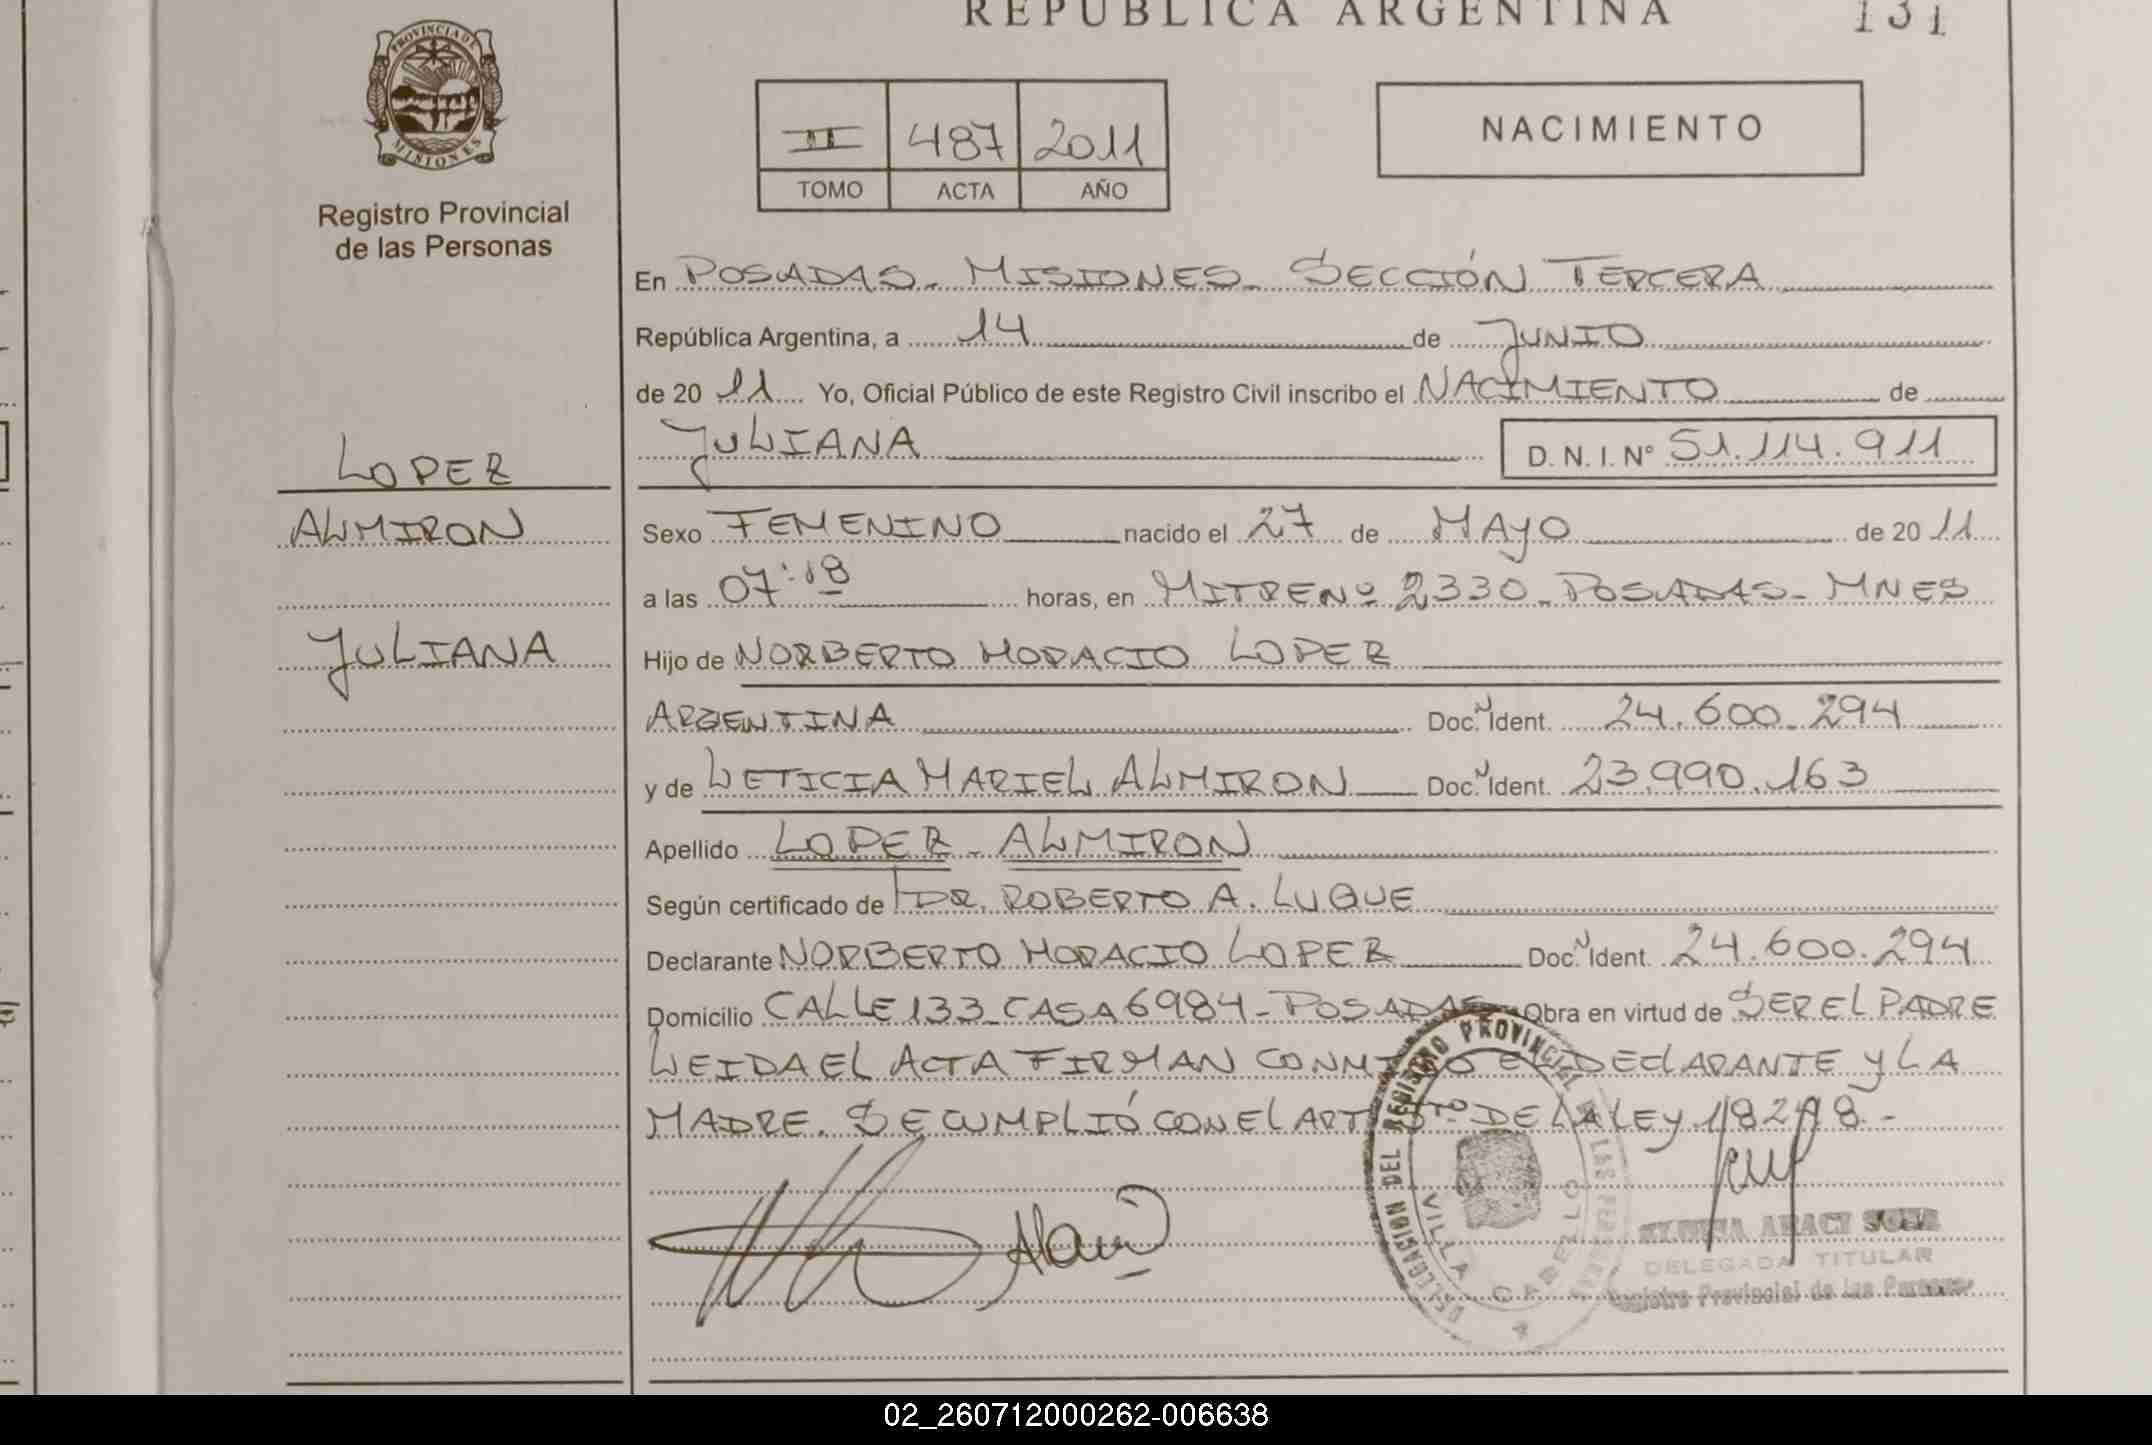 REPUBLICA ARGENTINA
131
PROVINCIA DE MISIONES
Registro Provincial
de las Personas
II 487 2011
TOMO ACTA AÑO
NACIMIENTO
En POSADAS - MISIONES - SECCIÓN TERCERA
República Argentina, a 14 de JUNIO
de 20 11 Yo, Oficial Público de este Registro Civil inscribo el NACIMIENTO de
JULIANA D. N. I. Nº 51.114.911
LOPEZ
ALMIRON
JULIANA
Sexo FEMENINO nacido el 27 de MAYO de 20 11
a las 07:18 horas, en MITRE Nº 2330 - POSADAS - MNES
Hijo de NORBERTO HORACIO LOPEZ
ARGENTINA Doc. N Ident. 24.600.294
y de LETICIA MARIEL ALMIRON Doc. N Ident. 23.990.163
Apellido LOPEZ - ALMIRON
Según certificado de DR. ROBERTO A. LUQUE
Declarante NORBERTO HORACIO LOPEZ Doc. N Ident. 24.600.294
Domicilio CALLE 133 CASA 6984 - POSADAS Obra en virtud de SER EL PADRE
LEIDA EL ACTA FIRMAN CONMIGO EL DECLARANTE Y LA
MADRE. SE CUMPLIÓ CON EL ART 5to DE LA LEY 18248.-
DELEGACION DEL REGISTRO PROVINCIAL DE LAS PERSONAS
VILLA CABELLO
ARACI
DELEGADA TITULAR
Registro Provincial de las Personas
02_260712000262-006638